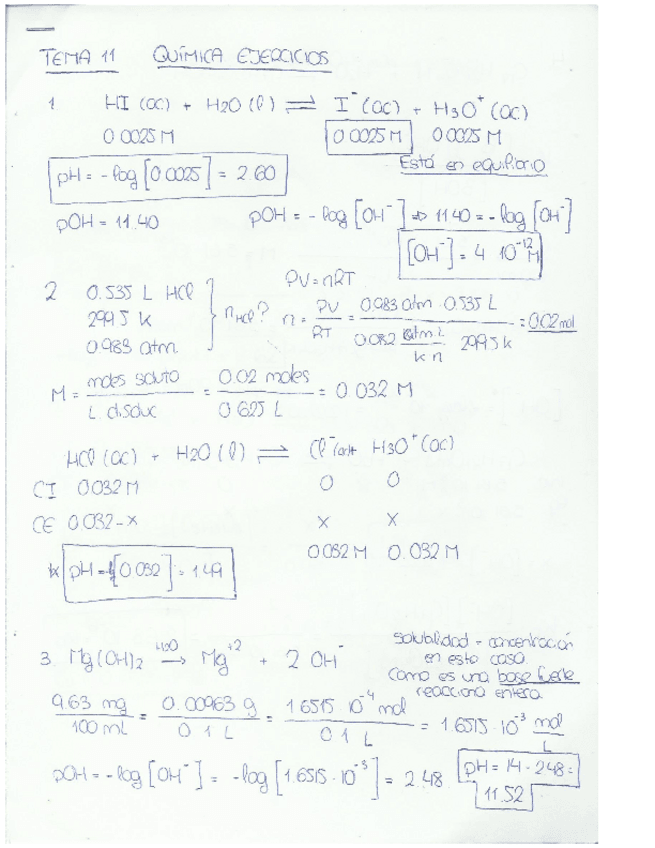 TEMA 11 QUÍMICA EJERCICIOS
1. HI (ac) + H2O (l) ⇌ I⁻ (ac) + H3O⁺ (ac)
0.0025 M 0.0025 M 0.0025 M
pH = -log [0.0025] = 2.60 Está en equilibrio
pOH = 11.40 pOH = -log [OH⁻] ⇒ 11.40 = -log [OH⁻]
[OH⁻] = 4·10⁻¹² M
PV = nRT
2. 0.535 L HCl
299.5 K nHCl? n = PV/RT = 0.983 atm · 0.535 L / 0.082 atm·L/K·n · 299.5 K = 0.02 mol
0.983 atm
M = moles soluto / L disoluc = 0.02 moles / 0.625 L = 0.032 M
HCl (ac) + H2O (l) ⇌ Cl⁻ (ac) + H3O⁺ (ac)
CI 0.032 M 0 0
CE 0.032-x x x
0.032 M 0.032 M
pH = [0.032] = 1.49
3. Mg(OH)2 →(H2O) Mg⁺² + 2 OH⁻
Solubilidad = concentración
en este caso.
Como es una base fuerte
reacciona entera.
9.63 mg / 100 mL = 0.00963 g / 0.1 L = 1.6515·10⁻⁴ mol / 0.1 L = 1.6515·10⁻³ mol/L
pOH = -log [OH⁻] = -log [1.6515·10⁻³] = 2.48 pH = 14 - 2.48 =
11.52